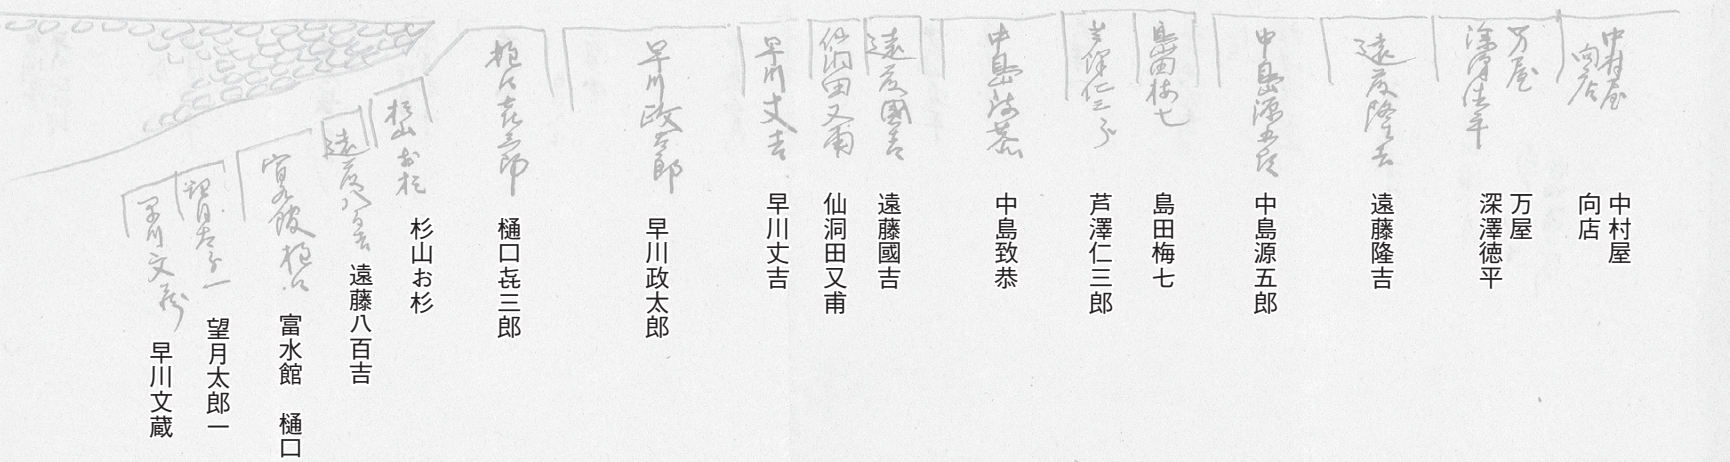 中村屋
向店
万屋
深澤徳平
遠藤隆吉
中島源五郎
島田梅七
芦澤仁三郎
中島致恭
遠藤國吉
仙洞田又甫
早川丈吉
早川政太郎
樋口㐂三郎
杉山お杉
遠藤八百吉
富水館 樋口
望月太郎一
早川文蔵